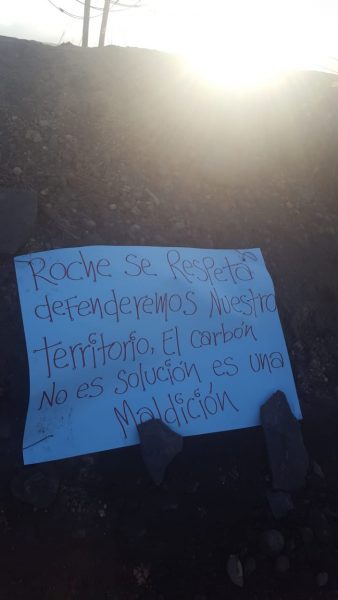 Roche se Respeta
defenderemos Nuestro
territorio, El carbón
No es solución es una
Maldición